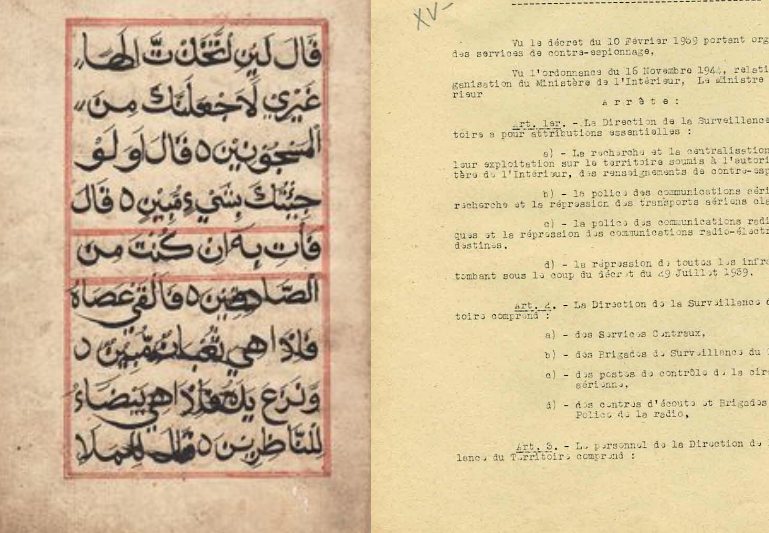 قَالَ لَئِنِ اتَّخَذْتَ إِلَهًا
غَيْرِي لَأَجْعَلَنَّكَ مِنَ
الْمَسْجُونِينَ ٥ قَالَ أَوَلَوْ
جِئْتُكَ بِشَيْءٍ مُّبِينٍ ٥ قَالَ
فَأْتِ بِهِ إِن كُنْتَ مِنَ
الصَّادِقِينَ ٥ فَأَلْقَى عَصَاهُ
فَإِذَا هِيَ ثُعْبَانٌ مُّبِينٌ ٥
وَنَزَعَ يَدَهُ فَإِذَا هِيَ بَيْضَاءُ
لِلنَّاظِرِينَ ٥ قَالَ لِلْمَلَإِ
XV-
Vu le décret du 10 Février 1939 portant org
des services de contre-espionnage,
Vu l'ordonnance du 16 Novembre 1944, relati
ganisation du Ministère de l'Intérieur, Le Ministre
rieur
ARRÊTE :
Art. 1er. - La Direction de la Surveillance
toire a pour attributions essentielles :
a) - La recherche et la centralisation
leur exploitation sur le territoire soumis à l'autori
tère de l'Intérieur, des renseignements de contre-esp
b) - la police des communications aéri
recherche et la répression des transports aériens cla
c) - la police des communications radi
ques et la répression des communications radio-électr
destines,
d) - la répression de toutes les infra
tombant sous le coup du décret du 29 Juillet 1939.
Art. 2. - La Direction de la Surveillance d
toire comprend :
a) - des Services Centraux,
b) - des Brigades de Surveillance du
c) - des postes de contrôle de la circ
aérienne,
d) - des centres d'écoute et Brigades
Police de la radio,
Art. 3. - Le personnel de la Direction de
lance du Territoire comprend :